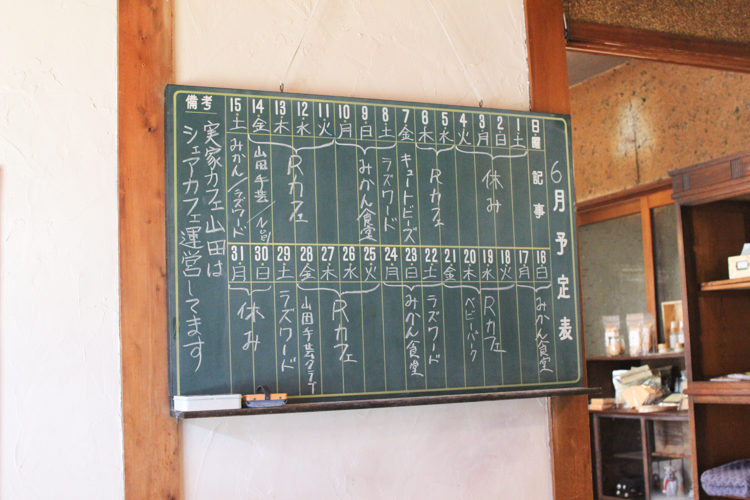 6月予定表
日 曜 記事
1 土
2 日
3 月
4 火
休み
5 水
6 木
Rカフェ
7 金
キュートビーズ
8 土
ラズワード
9 日
10 月
みかん食堂
11 火
12 水
13 木
Rカフェ
14 金
山田手芸/
15 土
みかん/ラズワード
16 日
みかん食堂
17 月
18 火
19 水
Rカフェ
20 木
ベビーパーク
21 金
22 土
ラズワード
23 日
みかん食堂
24 月
25 火
26 水
27 木
Rカフェ
28 金
山田手芸クラブ
29 土
ラズワード
30 日
31 月
休み
備考
実家カフェ山田は
シェアカフェ運営してます